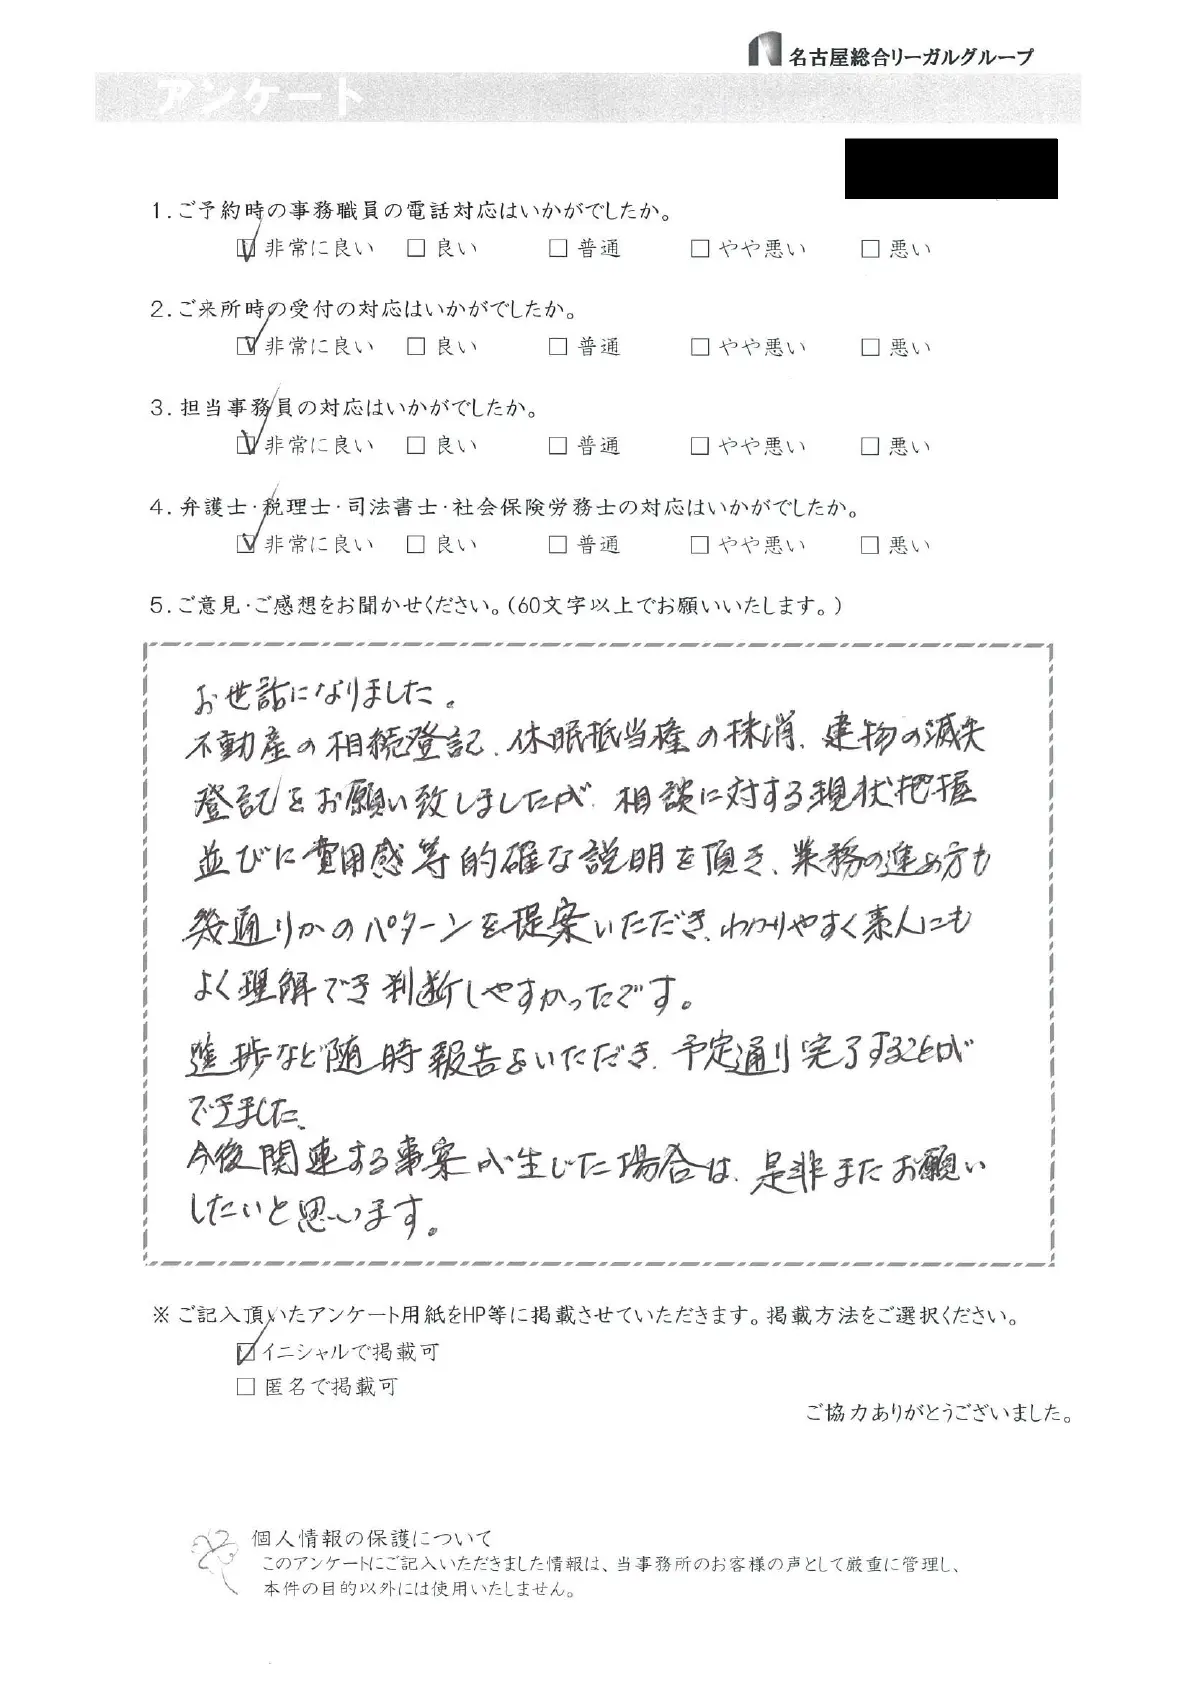 名古屋総合リーガルグループ
アンケート
1.ご予約時の事務職員の電話対応はいかがでしたか。
☑ 非常に良い □ 良い □ 普通 □ やや悪い □ 悪い
2.ご来所時の受付の対応はいかがでしたか。
☑ 非常に良い □ 良い □ 普通 □ やや悪い □ 悪い
3.担当事務員の対応はいかがでしたか。
☑ 非常に良い □ 良い □ 普通 □ やや悪い □ 悪い
4.弁護士・税理士・司法書士・社会保険労務士の対応はいかがでしたか。
☑ 非常に良い □ 良い □ 普通 □ やや悪い □ 悪い
5.ご意見・ご感想をお聞かせください。(60文字以上でお願いいたします。)
お世話になりました。
不動産の相続登記、休眠抵当権の抹消、建物の滅失
登記をお願い致しましたが、相談に対する現状把握
並びに費用感等的確な説明を頂き、業務の進め方も
幾通りかのパターンを提案いただき、わかりやすく素人にも
よく理解でき判断しやすかったです。
進捗など随時報告をいただき、予定通り完了することが
できました。
今後関連する事案が生じた場合は、是非またお願い
したいと思います。
※ ご記入頂いたアンケート用紙をHP等に掲載させていただきます。掲載方法をご選択ください。
☑ イニシャルで掲載可
□ 匿名で掲載可
ご協力ありがとうございました。
個人情報の保護について
このアンケートにご記入いただきました情報は、当事務所のお客様の声として厳重に管理し、
本件の目的以外には使用いたしません。